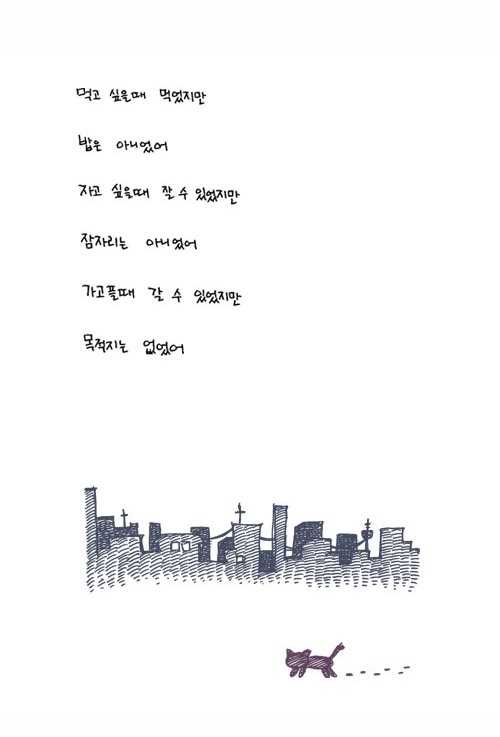 먹고 싶을때 먹었지만
밥은 아니었어
자고 싶을때 잘 수 있었지만
잠자리는 아니었어
가고플때 갈 수 있었지만
목적지는 없었어